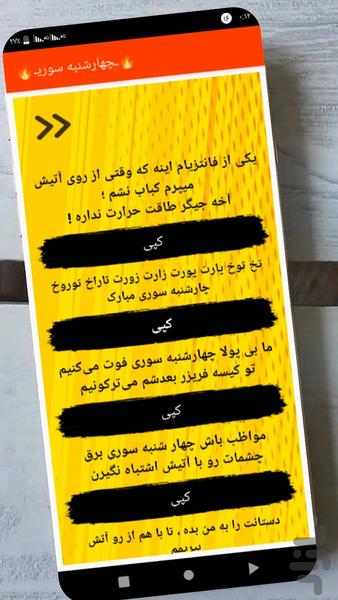 ۲۷٪
۱۶
۰:۱۲
🔥چهارشنبه سوری🔥
یکی از فانتزیام اینه که وقتی از روی آتیش
میپرم کباب نشم ؛
آخه جیگر طاقت حرارت نداره !
کپی
تخ توخ پارت پورت زارت زورت تاراخ توروخ
چارشنبه سوری مبارک
کپی
ما بی پولا چهارشنبه سوری فوت می‌کنیم
تو کیسه فریزر بعدشم می‌ترکونیم
کپی
مواظب باش چهار شنبه سوری برق
چشمات رو با آتیش اشتباه نگیرن
کپی
دستانت را به من بده ، تا با هم از رو آتش
بپریم